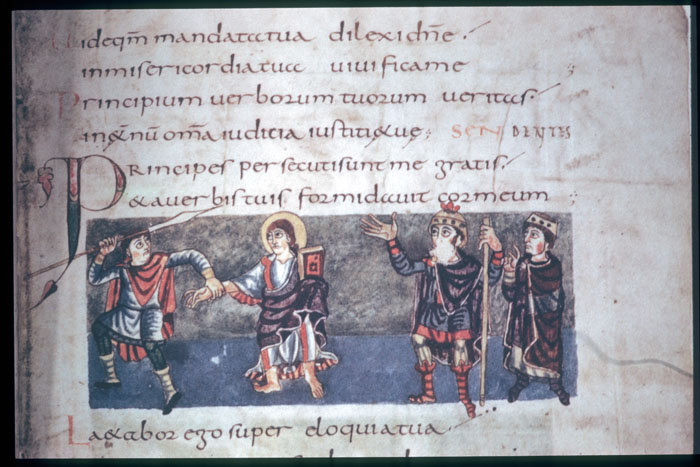 Uide qm̄ mandata tua dilexi dn̄e.
in misericordia tua uiuifica me
Principium uerborum tuorum ueritas.
in &nū om̄a iudicia iustitię tue; SEN DENTES
Principes persecuti sunt me gratis.
& a uerbis tuis formidauit cor meum
La&abor ego super eloquia tua